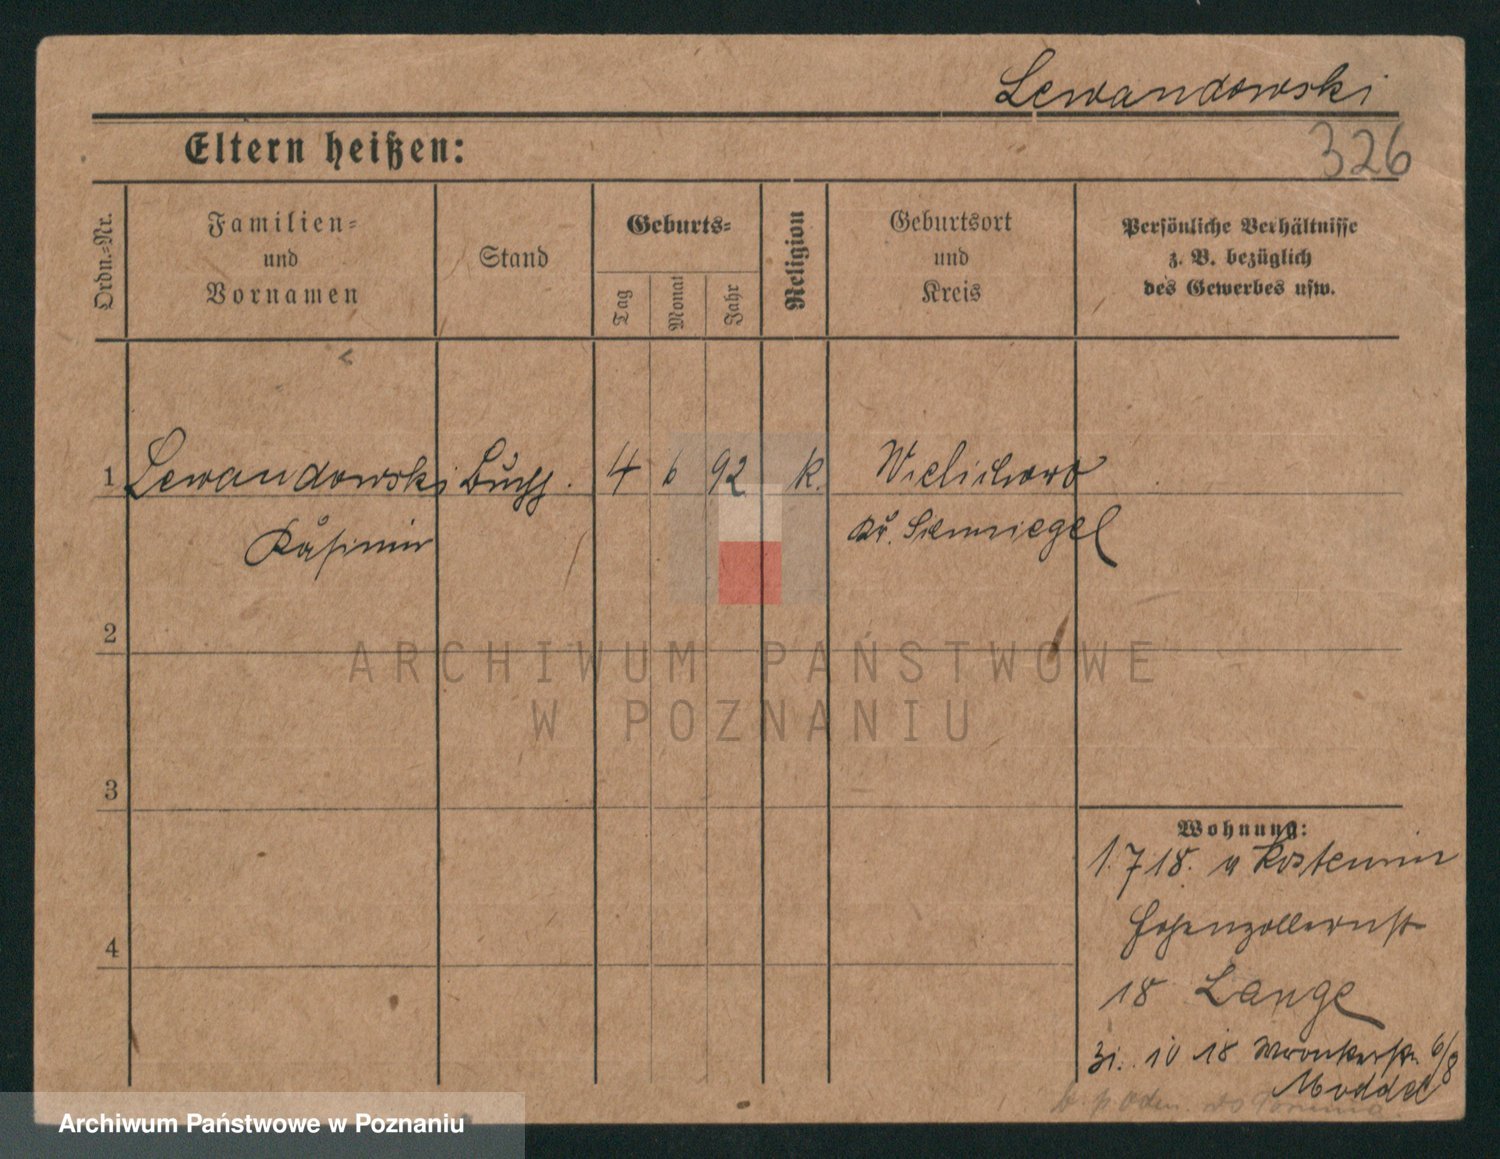 Lewandowski
326
Eltern heißen:
Ordn.-Nr.
Familien-
und
Vornamen
Stand
Geburts-
Tag
Monat
Jahr
Religion
Geburtsort
und
Kreis
Persönliche Verhältnisse
z. B. bezüglich
des Gewerbes usw.
1 Lewandowski Buchh. 4 6 92 k. Wielichowo
Kasimir Kr. Schmiegel
2
ARCHIWUM PAŃSTWOWE
W POZNANIU
3
4
Wohnung:
1.7 18. Kosten
Hohenzollernst
18 Lange
31. 10 18 Wronkerstr. 6/8
Moddel
Archiwum Państwowe w Poznaniu